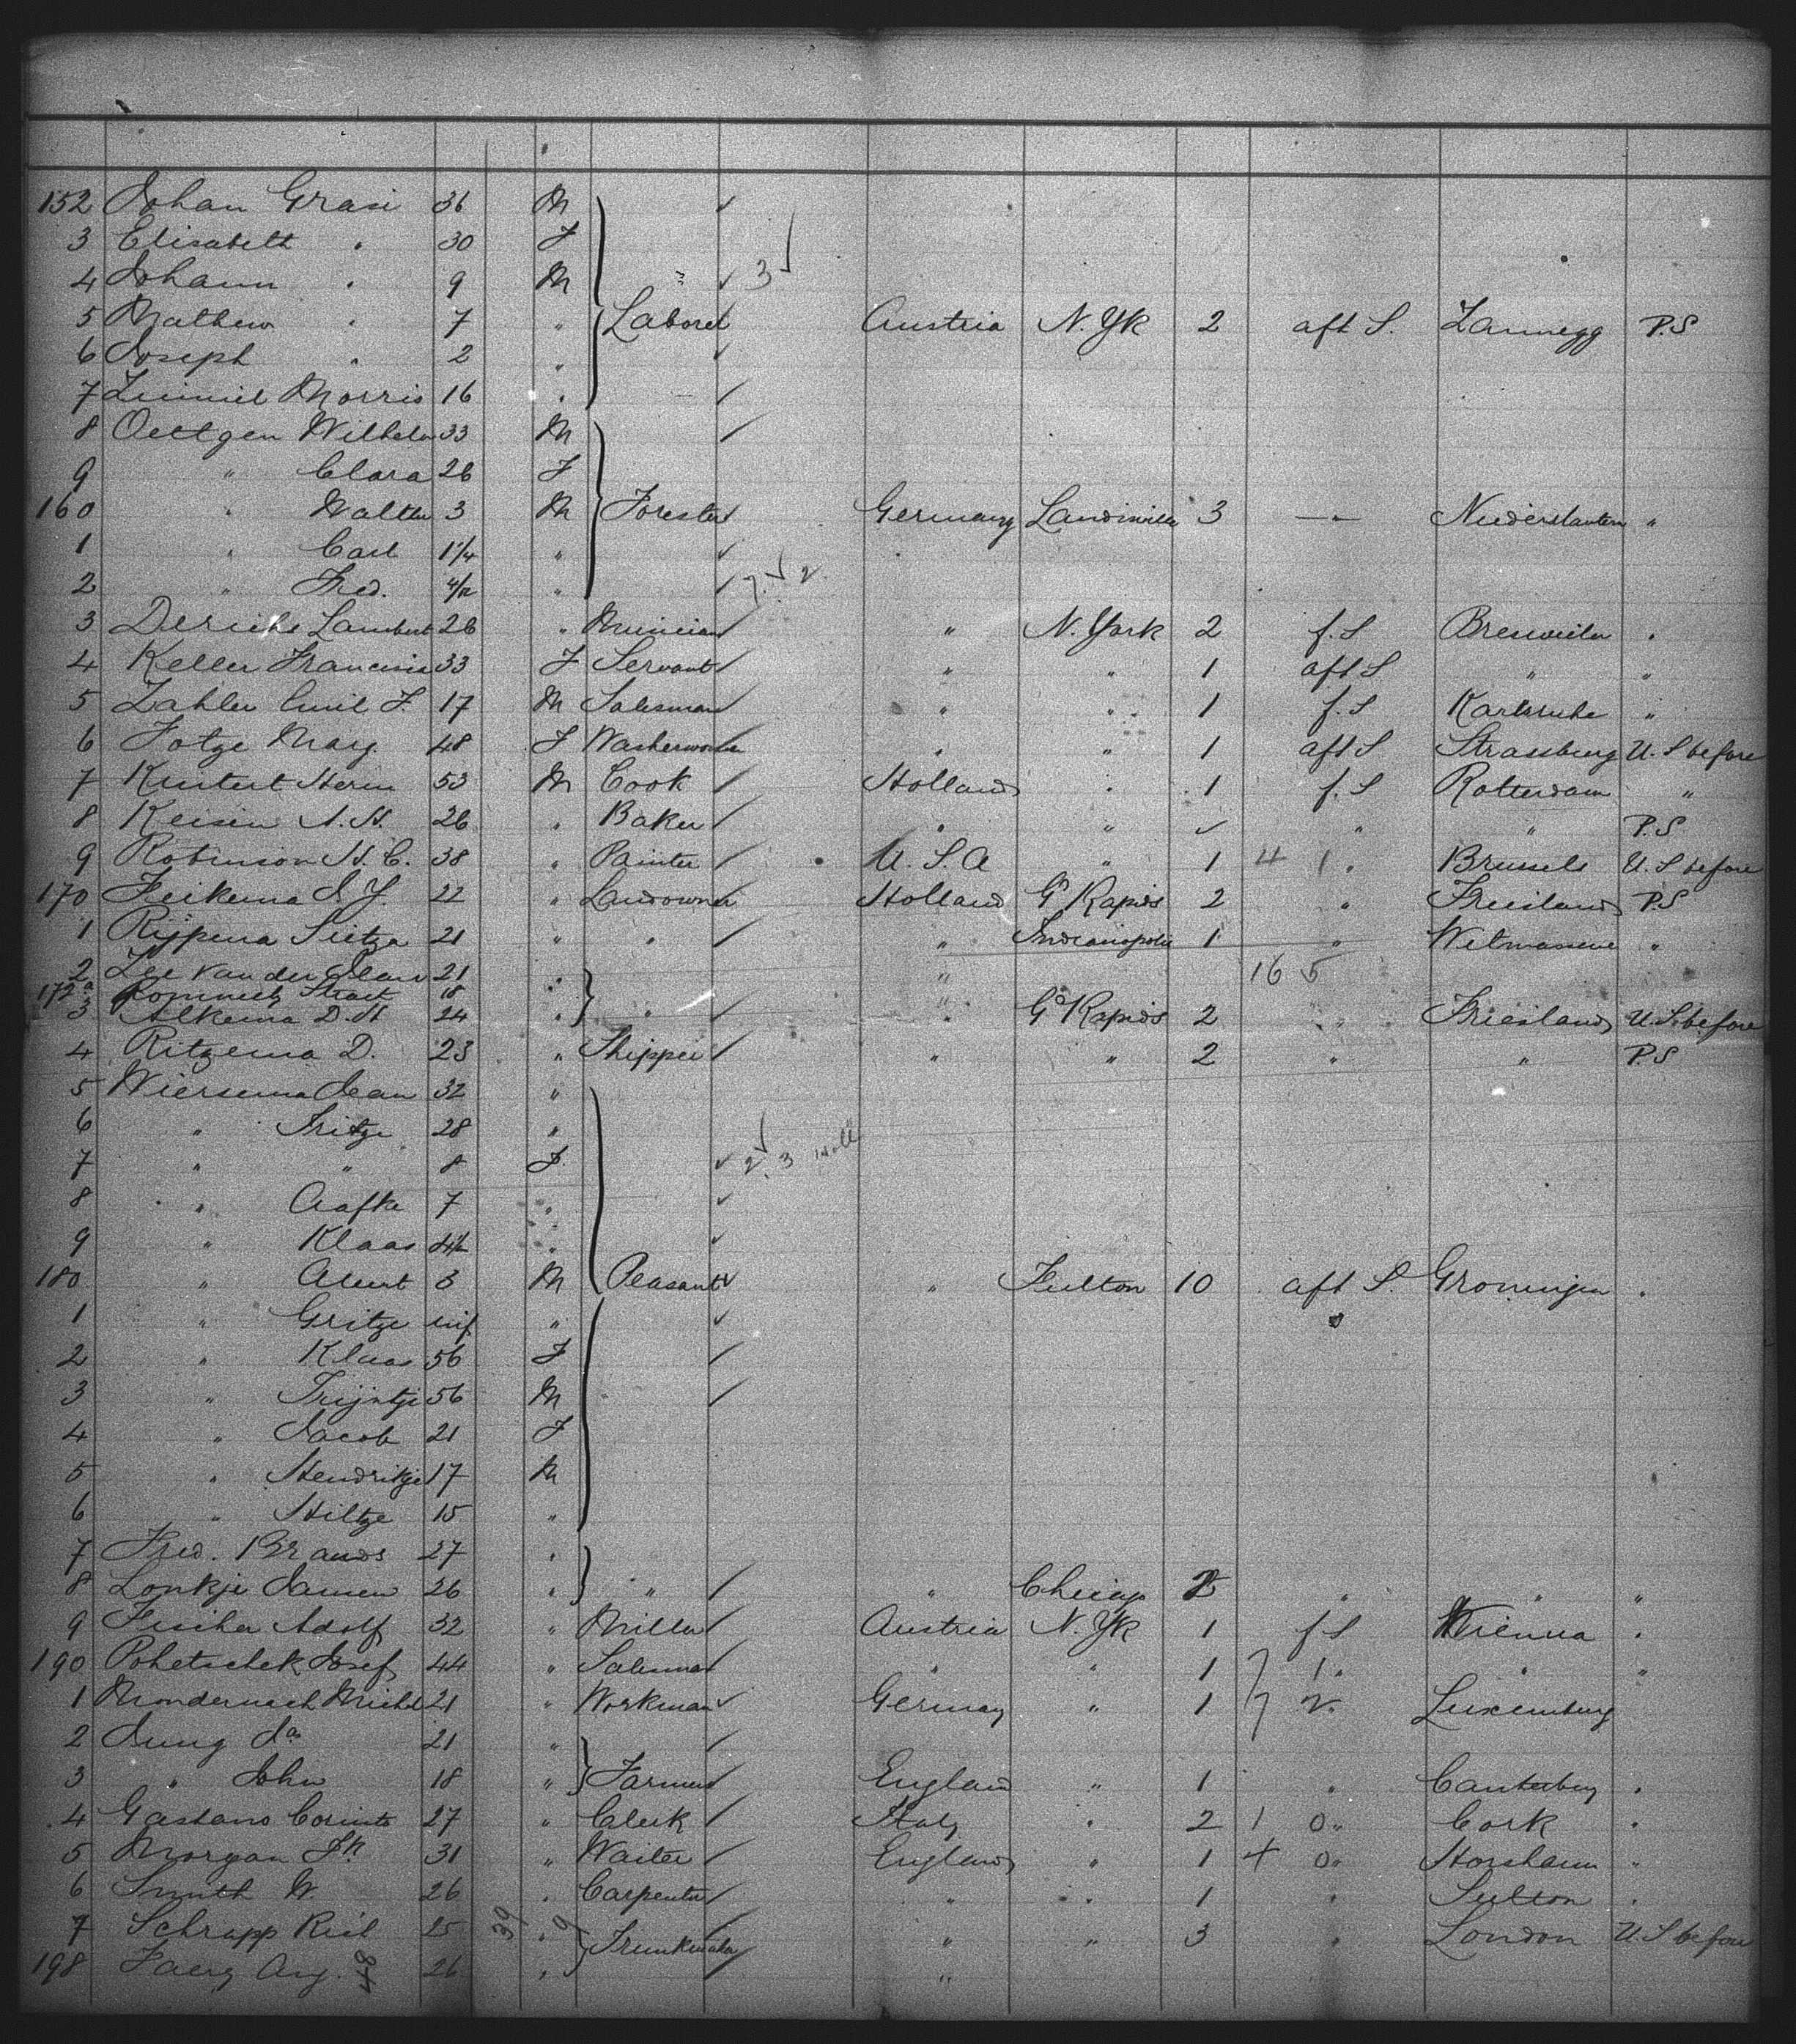 152 Johan Grasi 36 M
3 Elisabeth " 30 F
4 Johann " 9 M " 3
5 Mathew " 7 " Laborer Austria N. Yk 2 aft S. P.S
6 Joseph " 2 "
7 Morris 16 "
8 Oettgen Wilhelm 33 M
9 " Clara 26 F
160 " Walter 3 M Forester Germany 3 — " — "
1 " Carl 1 1/4 "
2 " Fred. 4/12 "
3 Derichs Lambert 26 " Musician " N. York 2 f. S "
4 Keller Francisca 33 F Servant " " 1 aft S " "
5 Zahler Emil F. 17 M Salesman " " 1 f. S Karlsruhe "
6 Fotze Mary 48 F Washerwoman " " 1 aft S Strassburg U. S before
7 Kuitert Herm 53 M Cook Holland " 1 f. S Rotterdam "
8 Keisin A. H. 26 " Baker " " " " P.S
9 Robinson H. C. 38 " Painter U. S. A " 1 4 1 " Brussels U. S before
170 Feikema S. J. 22 " Landowner Holland Gd Rapids 2 " Friesland P.S
1 Rijpema Sietze 21 " " " Indianapolis 1 " "
2 Zee van der Jean 21 " " 16 5
172a 18 "
3 Alkema D. H 24 " " " Gd Rapids 2 " Friesland U. S before
4 Ritzema D. 23 " Shipper " " 2 " " P.S
5 Wiersema Jean 32 "
6 " Fritze 28 "
7 " " 8 F 2 3 Holl
8 " Aafke 7 "
9 " Klaas 4 1/2 "
180 " 3 M Peasant " Fulton 10 aft S. Groningen "
1 " Gritze inf "
2 " Klaas 56 F
3 " Trijntje 56 M
4 " Jacob 21 F
5 " Hendrikje 17 M
6 " Hiltje 15 "
7 Fred. Brands 27 "
8 Lonkje Jansen 26 " " " Chicago 2 " " "
9 Fischer Adolf 32 " Miller Austria N. Yk 1 f S Vienna "
190 Pohetschek Josef 44 " Salesman " " 1 7 1 " " "
1 Mondernach Michel 21 " Workman Germany " 1 7 2 " Luxemburg
2 Jung Ja 21 "
3 " John 18 " Farmers England " 1 " Canterbury "
4 Gastano Corinto 27 " Clerk Italy " 2 1 0 " Cork "
5 Morgan Jn 31 " Waiter England " 1 4 0 " Horsham "
6 Smith W. 26 " Carpenter " " 1 " Sutton "
7 Schrapp Rid 25 39 " 9 Trunkmaker " " 3 " London U. S before
198 Faerg Aug. 84 26 " "